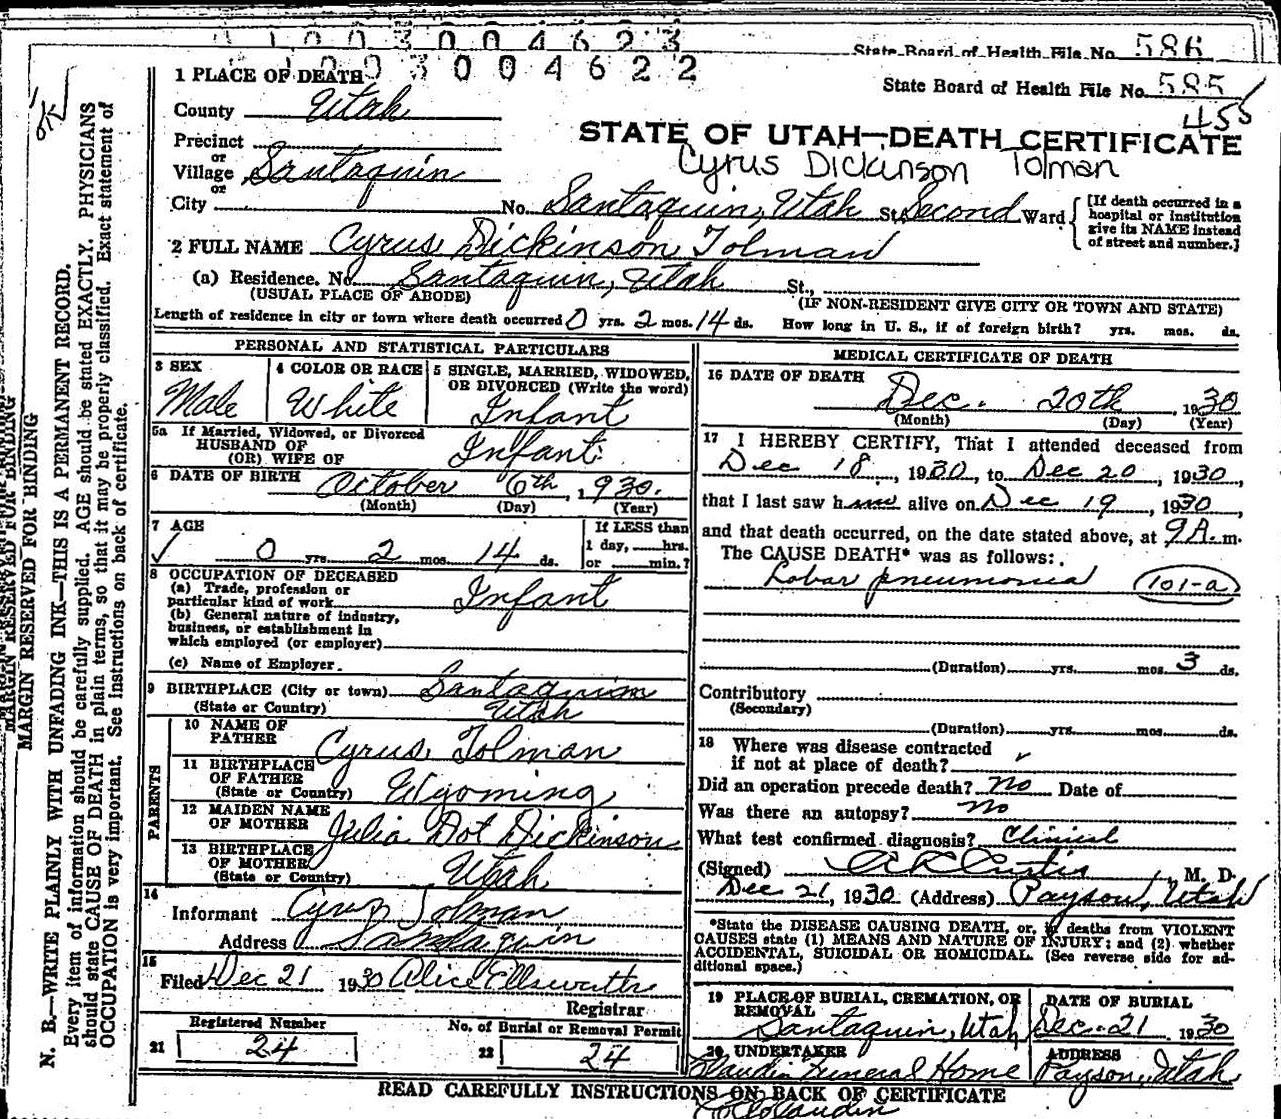 1 1 0 0 3 0 0 4 6 2 3
State Board of Health File No. 586
0 3 0 0 4 6 2 2
1 PLACE OF DEATH
State Board of Health File No. 585
455
County Utah
STATE OF UTAH—DEATH CERTIFICATE
Precinct
or
Cyrus Dickinson Tolman
Village Santaquin
or
City No. Santaquin, Utah St. Second Ward
[If death occurred in a
hospital or institution
give its NAME instead
of street and number.]
2 FULL NAME Cyrus Dickinson Tolman
(a) Residence. No. Santaquin, Utah St.,
(USUAL PLACE OF ABODE) (IF NON-RESIDENT GIVE CITY OR TOWN AND STATE)
Length of residence in city or town where death occurred 0 yrs. 2 mos. 14 ds. How long in U. S., if of foreign birth? yrs. mos. ds.
PERSONAL AND STATISTICAL PARTICULARS
3 SEX
Male
4 COLOR OR RACE
White
5 SINGLE, MARRIED, WIDOWED,
OR DIVORCED (Write the word)
Infant
5a If Married, Widowed, or Divorced
HUSBAND OF
(OR) WIFE OF Infant
6 DATE OF BIRTH October 6th, 1930.
(Month) (Day) (Year)
7 AGE
0 yrs. 2 mos. 14 ds.
If LESS than
1 day, hrs.
or min.?
8 OCCUPATION OF DECEASED
(a) Trade, profession or
particular kind of work Infant
(b) General nature of industry,
business, or establishment in
which employed (or employer)
(c) Name of Employer.
9 BIRTHPLACE (City or town) Santaquin
(State or Country) Utah
PARENTS
10 NAME OF
FATHER Cyrus Tolman
11 BIRTHPLACE
OF FATHER
(State or Country) Wyoming
12 MAIDEN NAME
OF MOTHER Julia Dot Dickinson
13 BIRTHPLACE
OF MOTHER
(State or Country) Utah
14
Informant Cyrus Tolman
Address Santaquin
15
Filed Dec 21 1930 Alice Ellsworth
Registrar
Registered Number
21 24
No. of Burial or Removal Permit
22 24
MEDICAL CERTIFICATE OF DEATH
16 DATE OF DEATH
Dec. 20th, 1930
(Month) (Day) (Year)
17 I HEREBY CERTIFY, That I attended deceased from
Dec 18, 1930, to Dec 20, 1930,
that I last saw him alive on Dec 19, 1930,
and that death occurred, on the date stated above, at 9 A. m.
The CAUSE DEATH* was as follows:
Lobar pneumonia 101-a
(Duration) yrs. mos. 3 ds.
Contributory
(Secondary)
(Duration) yrs. mos. ds.
18 Where was disease contracted
if not at place of death?
Did an operation precede death? no Date of
Was there an autopsy? no
What test confirmed diagnosis? Clinical
(Signed) Curtis, M. D.
Dec 21, 1930 (Address) Payson, Utah
*State the DISEASE CAUSING DEATH, or, if deaths from VIOLENT
CAUSES state (1) MEANS AND NATURE OF INJURY; and (2) whether
ACCIDENTAL, SUICIDAL OR HOMICIDAL. (See reverse side for ad-
ditional space.)
19 PLACE OF BURIAL, CREMATION, OR
REMOVAL
Santaquin, Utah
DATE OF BURIAL
Dec. 21 1930
20 UNDERTAKER
Claudin Funeral Home
ADDRESS
Payson, Utah
READ CAREFULLY INSTRUCTIONS ON BACK OF CERTIFICATE
MARGIN RESERVED FOR BINDING
MARGIN RESERVED FOR BINDING
N. B.—WRITE PLAINLY WITH UNFADING INK—THIS IS A PERMANENT RECORD.
Every item of information should be carefully supplied. AGE should be stated EXACTLY. PHYSICIANS
should state CAUSE OF DEATH in plain terms, so that it may be properly classified. Exact statement of
OCCUPATION is very important. See instructions on back of certificate.